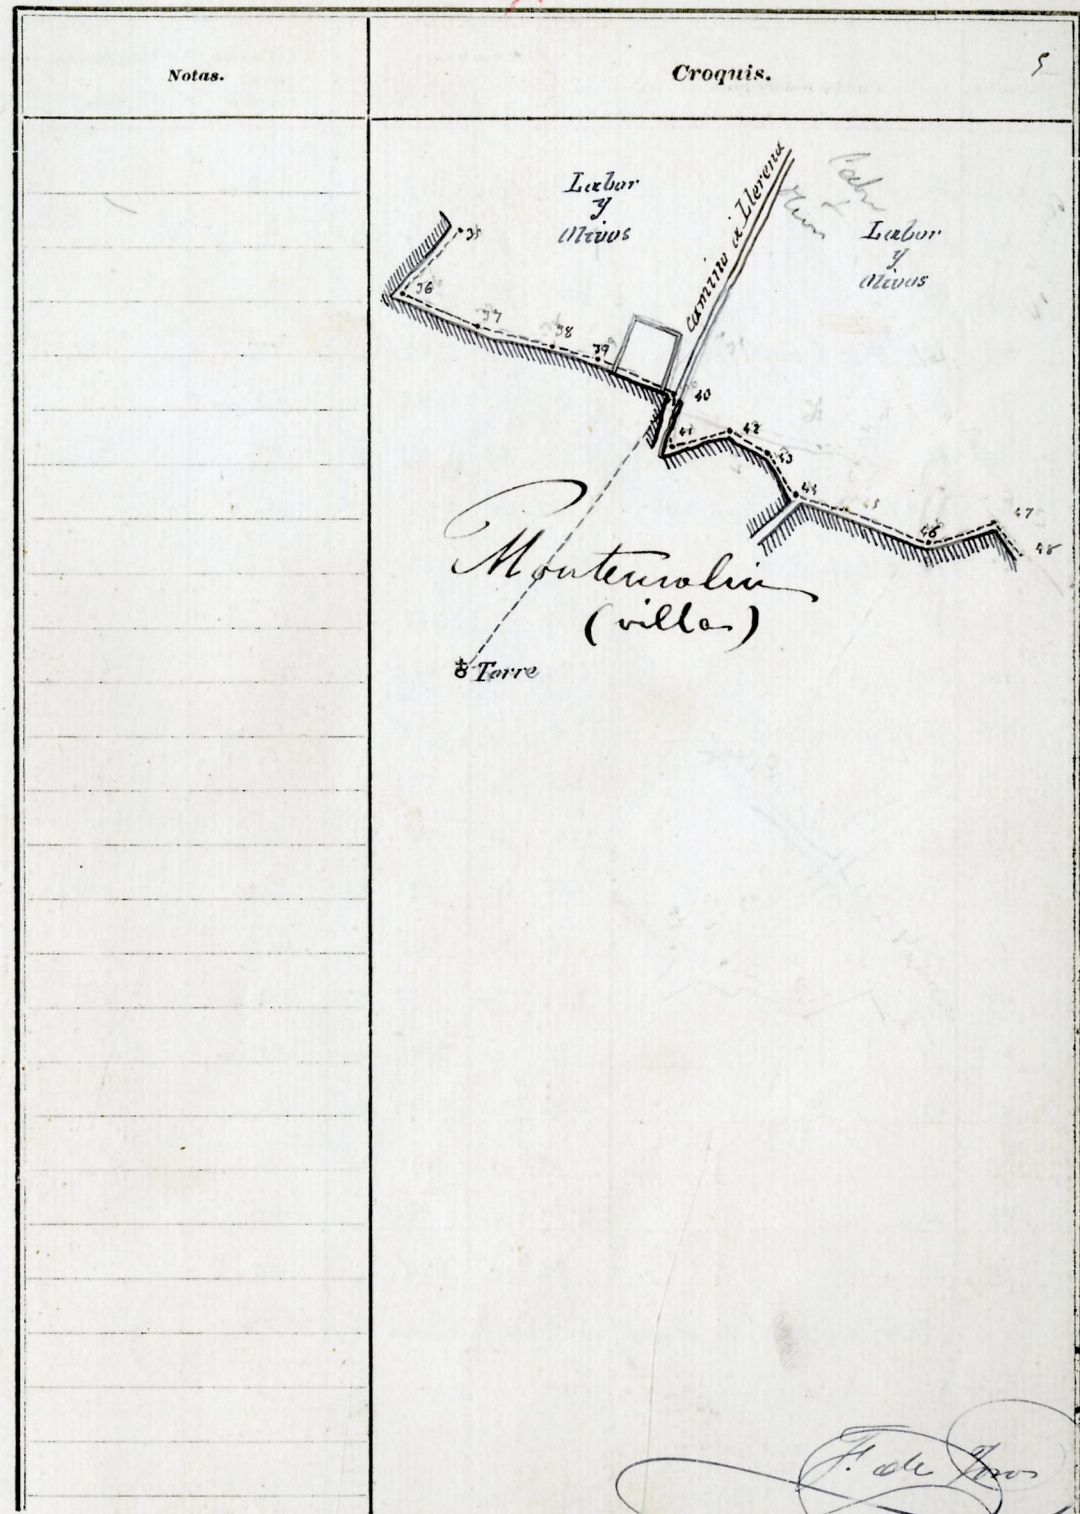 Notas.
Croquis.
5
Labor
y
Olivos
Camino á Llerena
Labor
y
Olivos
35
36
37
38
39
40
41
42
43
44
45
46
47
48
Montemolin
(villa)
Torre
F. de